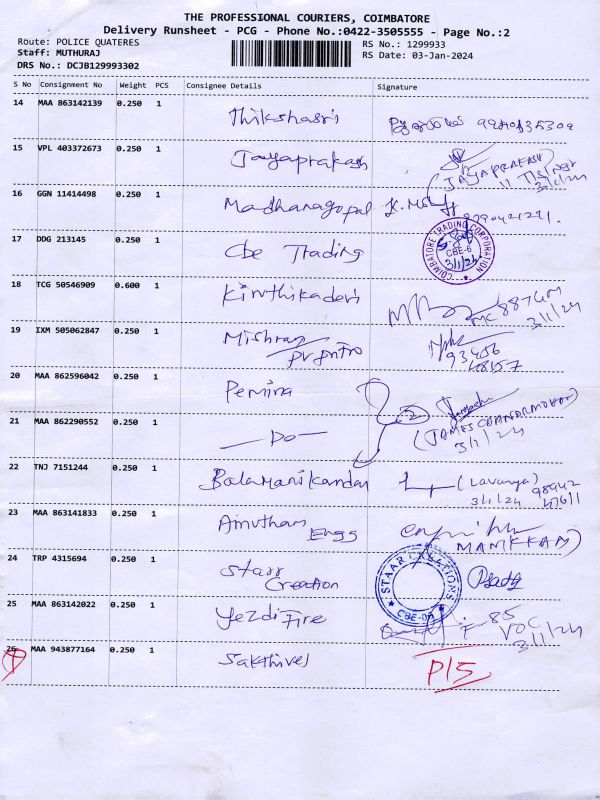 THE PROFESSIONAL COURIERS, COIMBATORE
Delivery Runsheet - PCG - Phone No.:0422-3505555 - Page No.:2
Route: POLICE QUATERES
Staff: MUTHURAJ
DRS No.: DCJB129993302
RS No.: 1299933
RS Date: 03-Jan-2024
S No Consignment No Weight PCS Consignee Details Signature
14 MAA 863142139 0.250 1 Thikshasri
15 VPL 403372673 0.250 1 Jayaprakash JAYAPRAKASH
3/1/24
16 GGN 11414498 0.250 1 Madhanagopal
17 DDG 213145 0.250 1 Cbe Trading COIMBATORE TRADING CORPORATION
CBE-6
3/1/24
18 TCG 50546909 0.600 1 Kiruthikadevi
3/1/24
19 IXM 505062847 0.250 1 Mishray
pv pntro
20 MAA 862596042 0.250 1 Pemina 2
21 MAA 862290552 0.250 1 — Do — (JAMES CHANDRMOHAN)
3/1/24
22 TNJ 7151244 0.250 1 Balamanikandan (Lavanya) 98942
3/1/24
23 MAA 863141833 0.250 1 Amutham
Engg MANIKKAM)
24 TRP 4315694 0.250 1 Starr
Creation STAAR CREATIONS
25 MAA 863142022 0.250 1 Yezdi Fire 85
VOC
3/1/24
26 MAA 943877164 0.250 1 Sakthivel P15